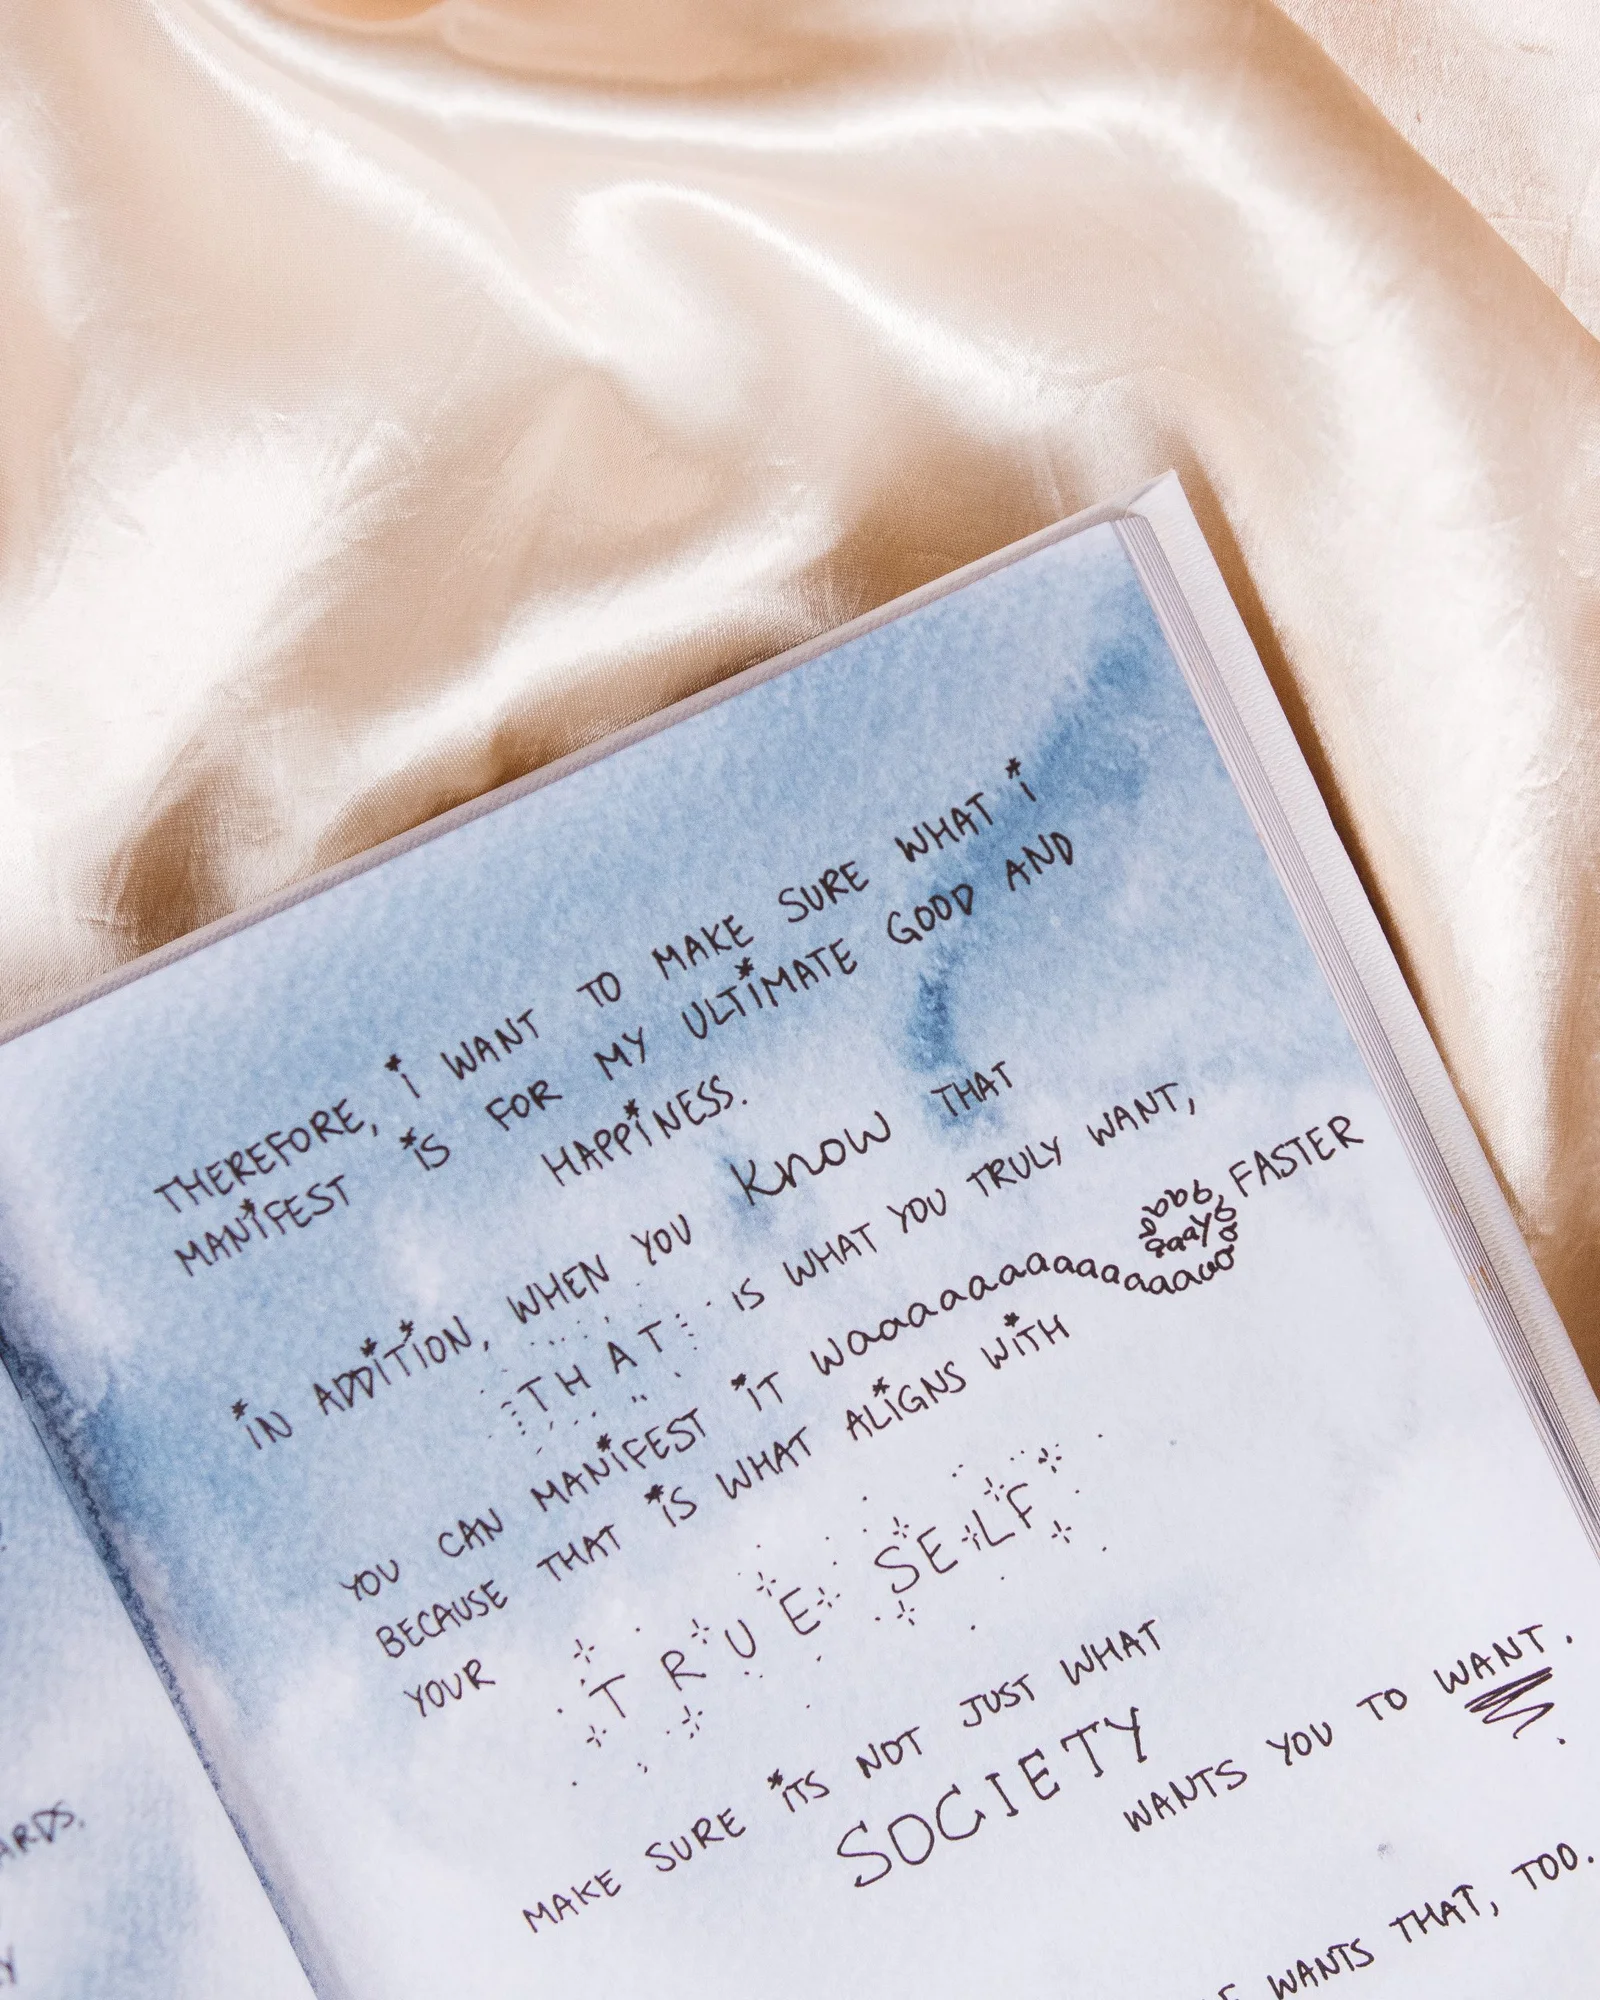 ARDS.
THEREFORE, i WANT TO MAKE SURE WHAT i
MANiFEST iS FOR MY ULTiMATE GOOD AND
HAPPiNESS.
iN ADDiTiON, WHEN YOU Know THAT
THAT iS WHAT YOU TRULY WANT,
YOU CAN MANiFEST iT Waaaaaaaaaaaaaaaaaaaaaaaaaay FASTER
BECAUSE THAT iS WHAT ALiGNS WiTH
YOUR TRUE SELF
MAKE SURE iTS NOT JUST WHAT
SOCIETY
WANTS YOU TO WANT.
WANTS THAT, TOO.